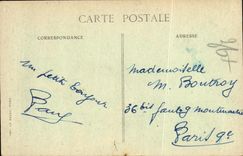 CARTE POSTALE
CORRESPONDANCE
ADRESSE
un petit bonjour
Mademoiselle
M. Boutroy
36 bis faubg montmartre
Paris 9e